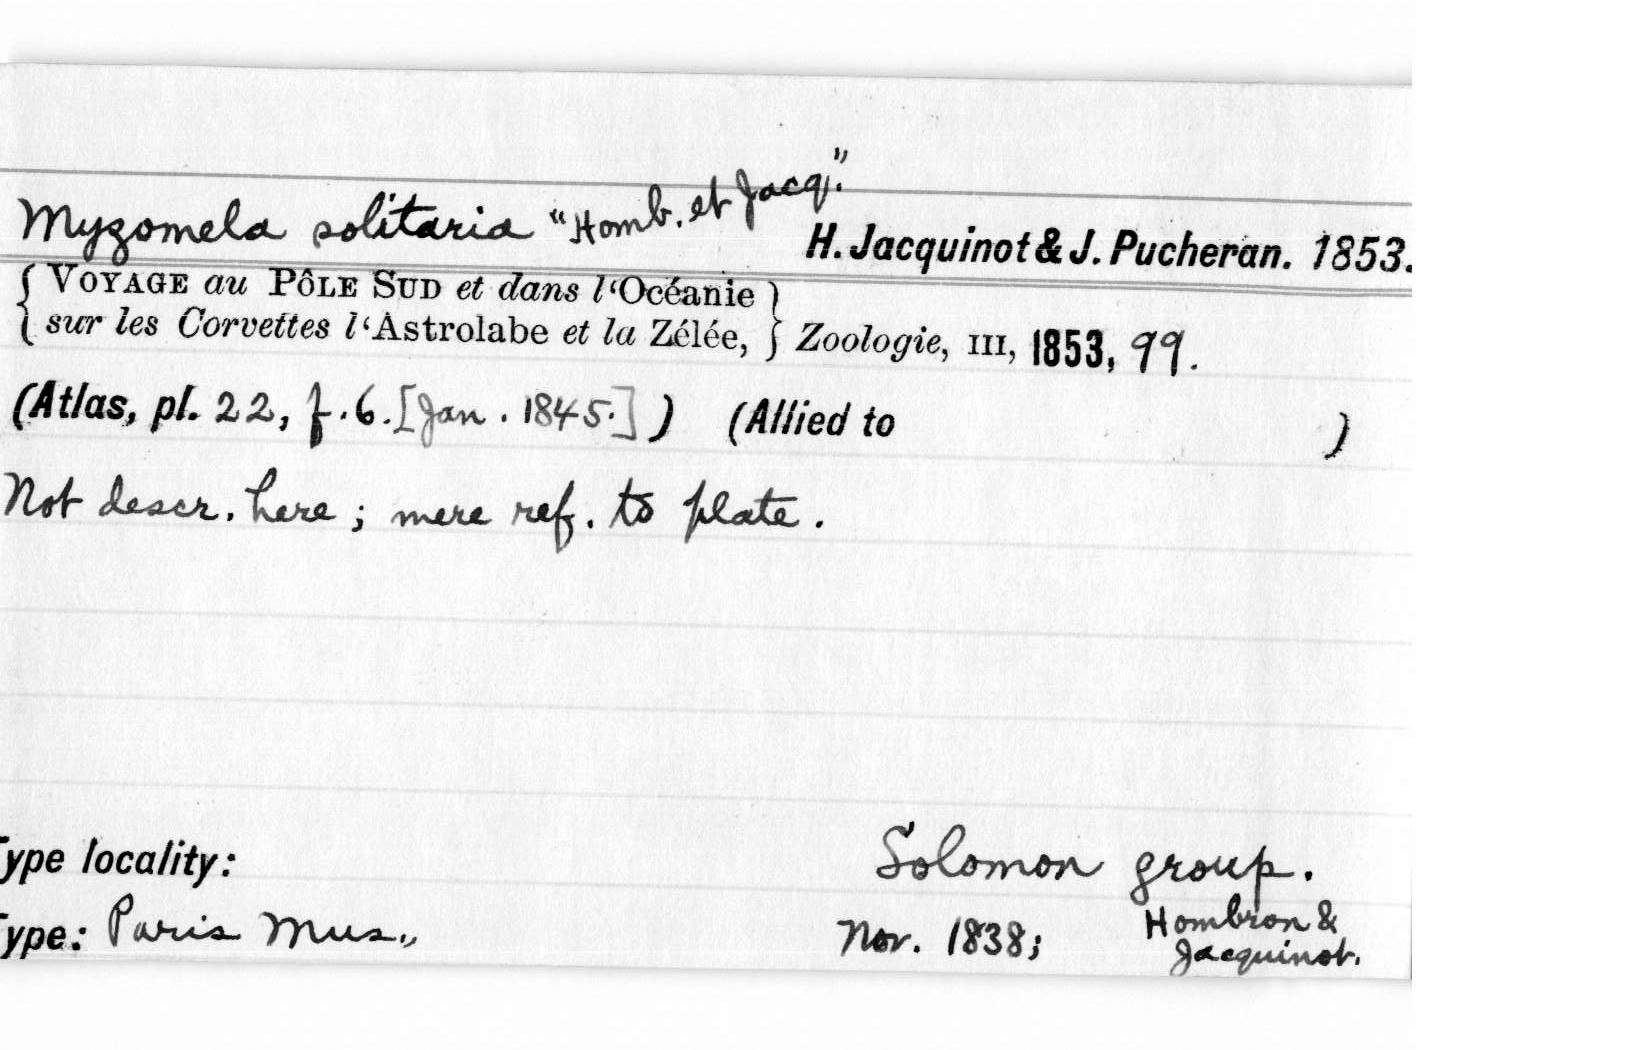 Myzomela solitaria "Homb. et Jacq."
H. Jacquinot & J. Pucheran. 1853.
{ VOYAGE au PÔLE SUD et dans l'Océanie }
{ sur les Corvettes l'Astrolabe et la Zélée, } Zoologie, III, 1853, 99.
(Atlas, pl. 22, f. 6. [Jan. 1845.] ) (Allied to )
Not descr. here; mere ref. to plate.
Type locality: Solomon group.
Type: Paris Mus., Nov. 1838; Hombron &
Jacquinot.